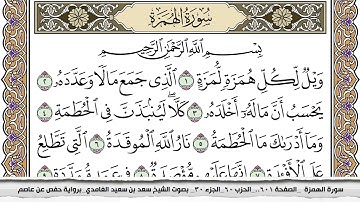 سُورَةُ الهُمَزَةِ
بِسْمِ اللَّهِ الرَّحْمَٰنِ الرَّحِيمِ
وَيْلٌ لِّكُلِّ هُمَزَةٍ لُّمَزَةٍ ١ الَّذِي جَمَعَ مَالًا وَعَدَّدَهُ ٢
يَحْسَبُ أَنَّ مَالَهُ أَخْلَدَهُ ٣ كَلَّا لَيُنۢبَذَنَّ فِي الْحُطَمَةِ ٤
وَمَا أَدْرَاكَ مَا الْحُطَمَةُ ٥ نَارُ اللَّهِ الْمُوقَدَةُ ٦ الَّتِي تَطَّلِعُ
عَلَى الْأَفْـِٔدَةِ ٧ إِنَّهَا عَلَيْهِم مُّؤْصَدَةٌ ٨ فِي عَمَدٍ مُّمَدَّدَةٍ ٩
سورة الهمزة _الصفحة ٦٠١.. الحزب ٦٠_الجزء ٣٠_ بصوت الشيخ سعد بن سعيد الغامدي _برواية حفص عن عاصم